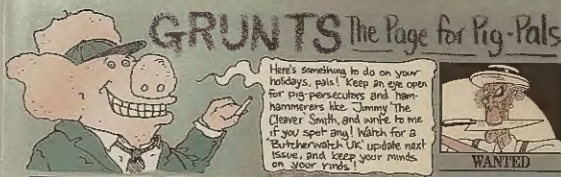 GRUNTS The Page for Pig-Pals
Here's something to do on your
holidays, pals! Keep an eye open
for pig-persecutors and ham-
hammerers like Jimmy 'The
Cleaver' Smith, and write to me
if you spot any! Watch for a
'Butcherwatch UK' update next
issue, and keep your minds
on your rinds!
WANTED